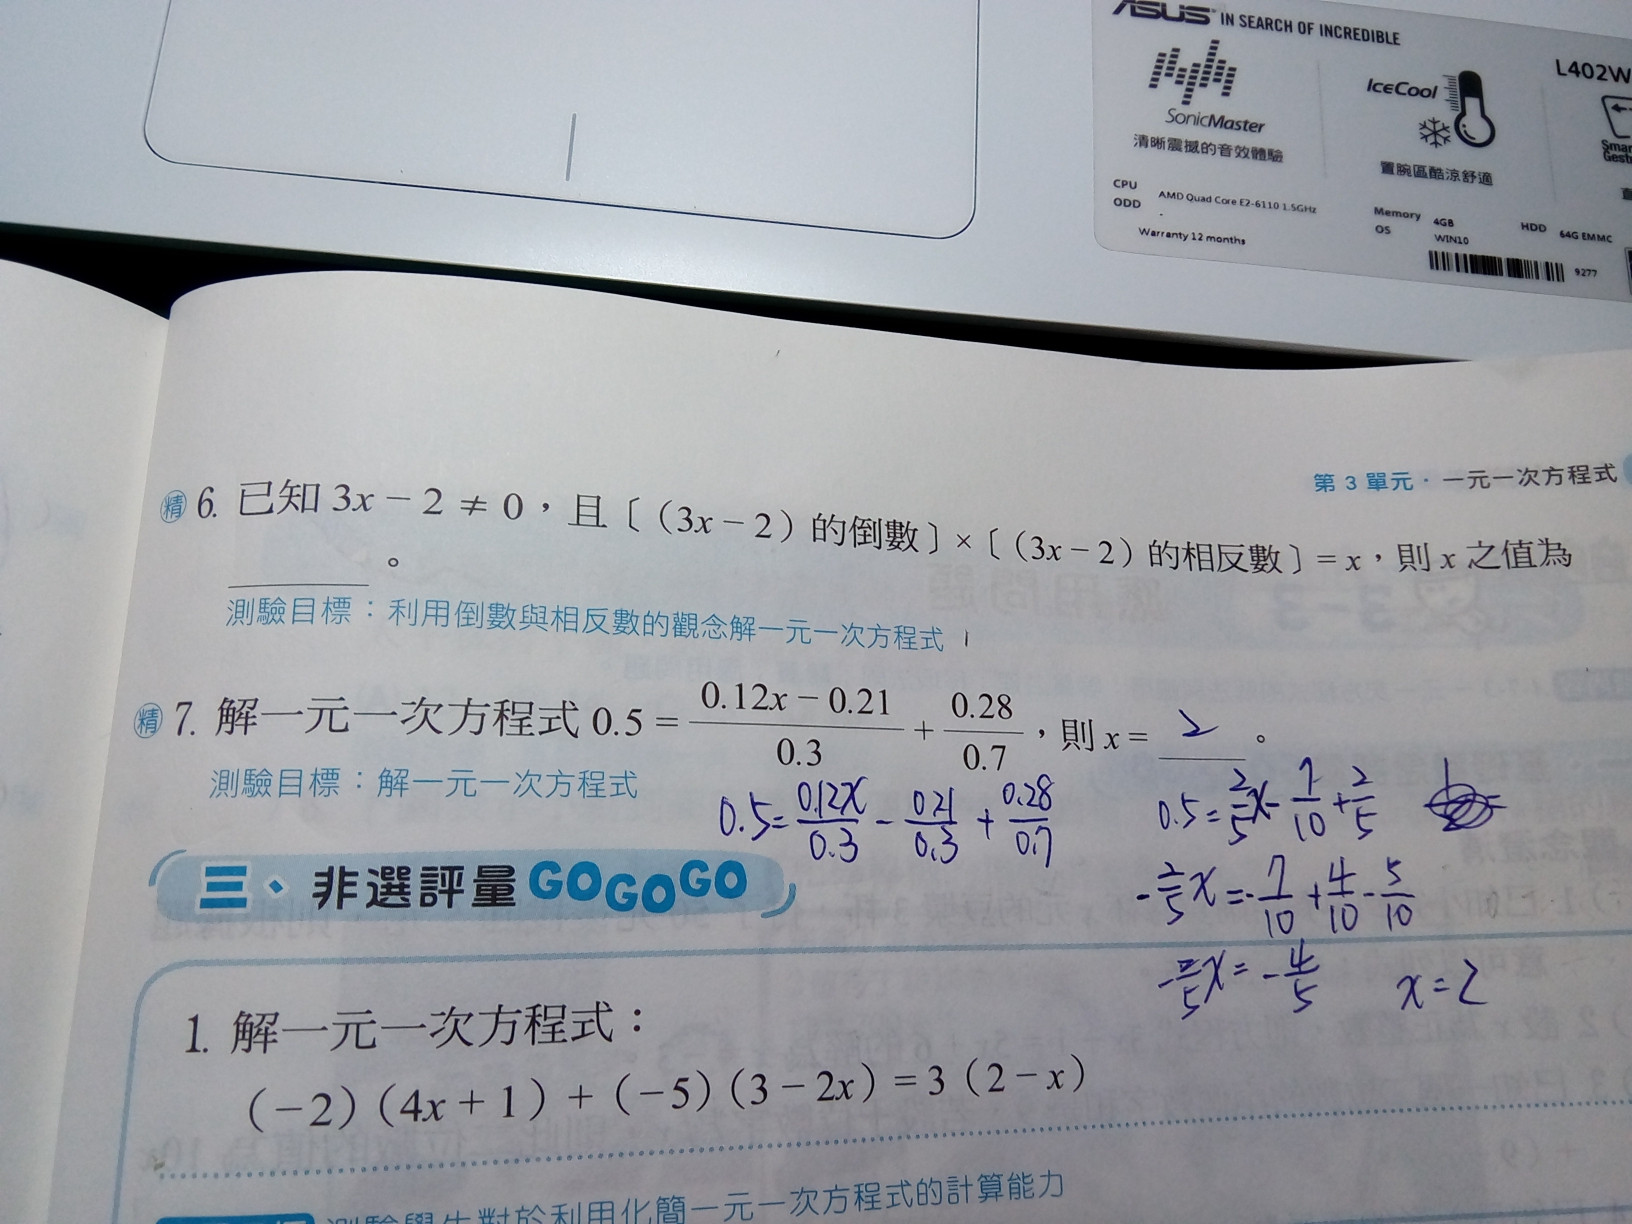 ASUS IN SEARCH OF INCREDIBLE
L402W
SonicMaster
清晰震撼的音效體驗
IceCool
置腕區酷涼舒適
CPU AMD Quad Core E2-6110 1.5GHz
ODD -
Warranty 12 months
Memory 4GB
OS WIN10
HDD 64G EMMC
9277
第 3 單元·一元一次方程式
精 6. 已知 3x − 2 ≠ 0，且〔（3x − 2）的倒數〕×〔（3x − 2）的相反數〕= x，則 x 之值為
______。
測驗目標：利用倒數與相反數的觀念解一元一次方程式
精 7. 解一元一次方程式 0.5 = \frac{0.12x − 0.21}{0.3} + \frac{0.28}{0.7}，則 x = 2 。
測驗目標：解一元一次方程式
0.5 = \frac{0.12x}{0.3} - \frac{0.21}{0.3} + \frac{0.28}{0.7}
0.5 = \frac{2}{5}x - \frac{7}{10} + \frac{2}{5}
-\frac{2}{5}x = -\frac{7}{10} + \frac{4}{10} - \frac{5}{10}
-\frac{2}{5}x = -\frac{4}{5}
x = 2
三、非選評量 GOGOGO
1. 解一元一次方程式：
（−2）（4x + 1）+（−5）（3 − 2x）= 3（2 − x）
測驗學生對於利用化簡一元一次方程式的計算能力